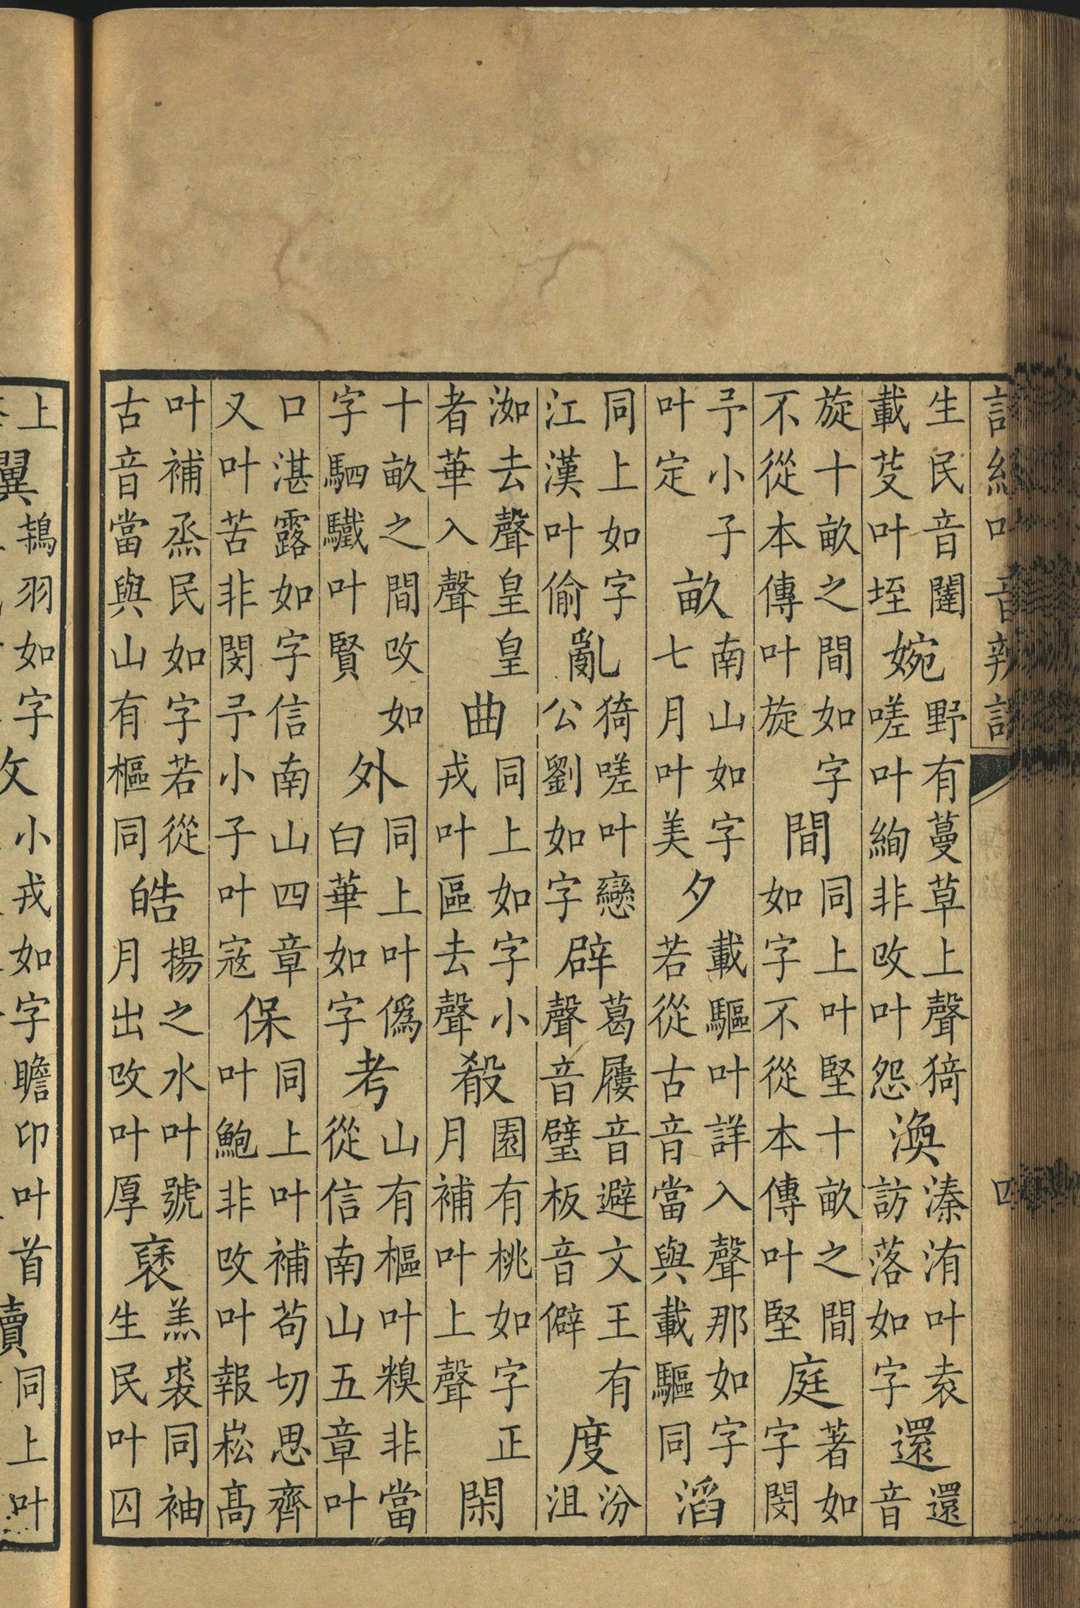 詩經叶音辨訛 四
生民音闥載芟叶垤婉野有蔓草上聲猗嗟叶絢非改叶怨渙溱洧叶袁訪落如字還還音
旋十畝之間如字不從本傳叶旋間同上叶堅十畝之間如字不從本傳叶堅庭著如字閔
予小子叶定畝南山如字七月叶美夕載驅叶詳入聲那如字若從古音當與載驅同滔
同上如字江漢叶偷亂猗嗟叶戀公劉如字辟葛屨音避文王有聲音璧板音僻度汾沮
洳去聲皇皇者華入聲曲同上如字小戎叶區去聲殺園有桃如字正月補叶上聲閑
十畝之間改如字駟驖叶賢外同上叶僞白華如字考山有樞叶糗非當從信南山五章叶
口湛露如字信南山四章又叶苦非閔予小子叶寇保同上叶補苟切思齊叶鮑非改叶報崧高
叶補烝民如字若從古音當與山有樞同皓揚之水叶號月出改叶厚襃羔裘同袖生民叶囚
上鴇羽如字小戎如字瞻卬叶首同上叶